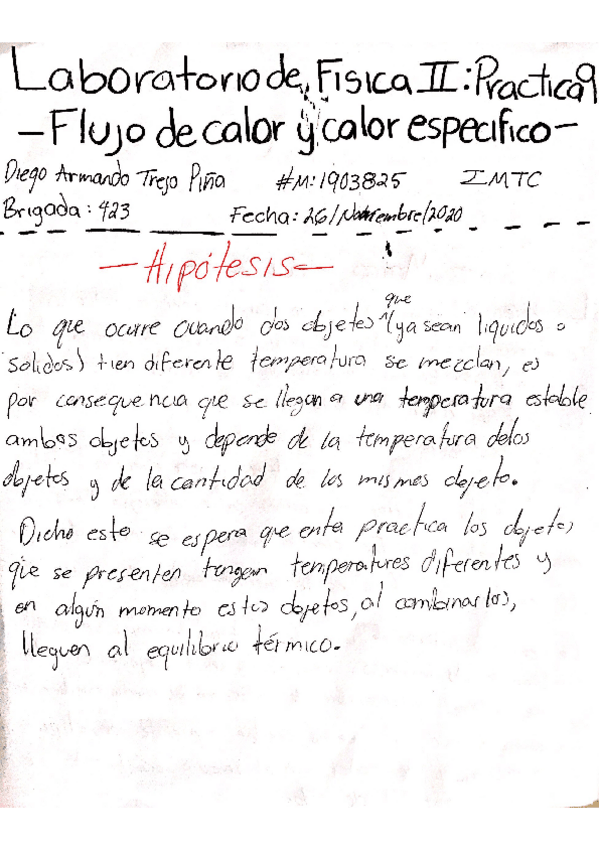 Laboratorio de Fisica II: Practica 9
-Flujo de calor y calor especifico-
Diego Armando Trejo Piña #M: 1903825 IMTC
Brigada: 423 Fecha: 26/Noviembre/2020
-Hipótesis-
que
Lo que ocurre cuando dos objetos (ya sean liquidos o
solidos) tien diferente temperatura se mezclan, es
por consequencia que se llegan a una temperatura estable
ambos objetos y depende de la temperatura delos
objetos y de la cantidad de los mismos objeto.
Dicho esto se espera que enta practica los objetos
que se presenten tengan temperatures diferentes y
en algún momento estos objetos, al combinarlos,
lleguen al equilibrio térmico.